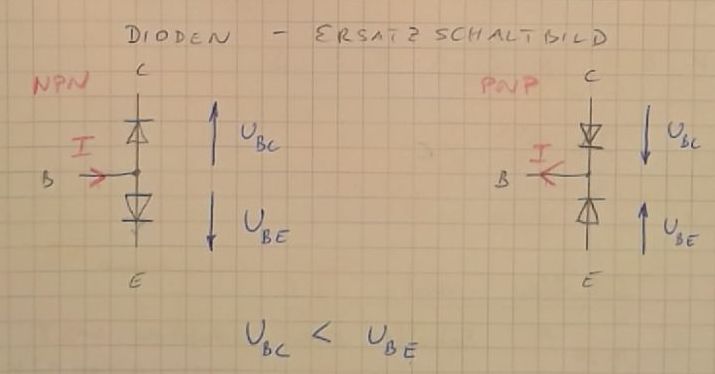 DIODEN - ERSATZSCHALTBILD
NPN C
I
B
U_BC
U_BE
E
PNP C
I
B
U_BC
U_BE
E
U_BC < U_BE